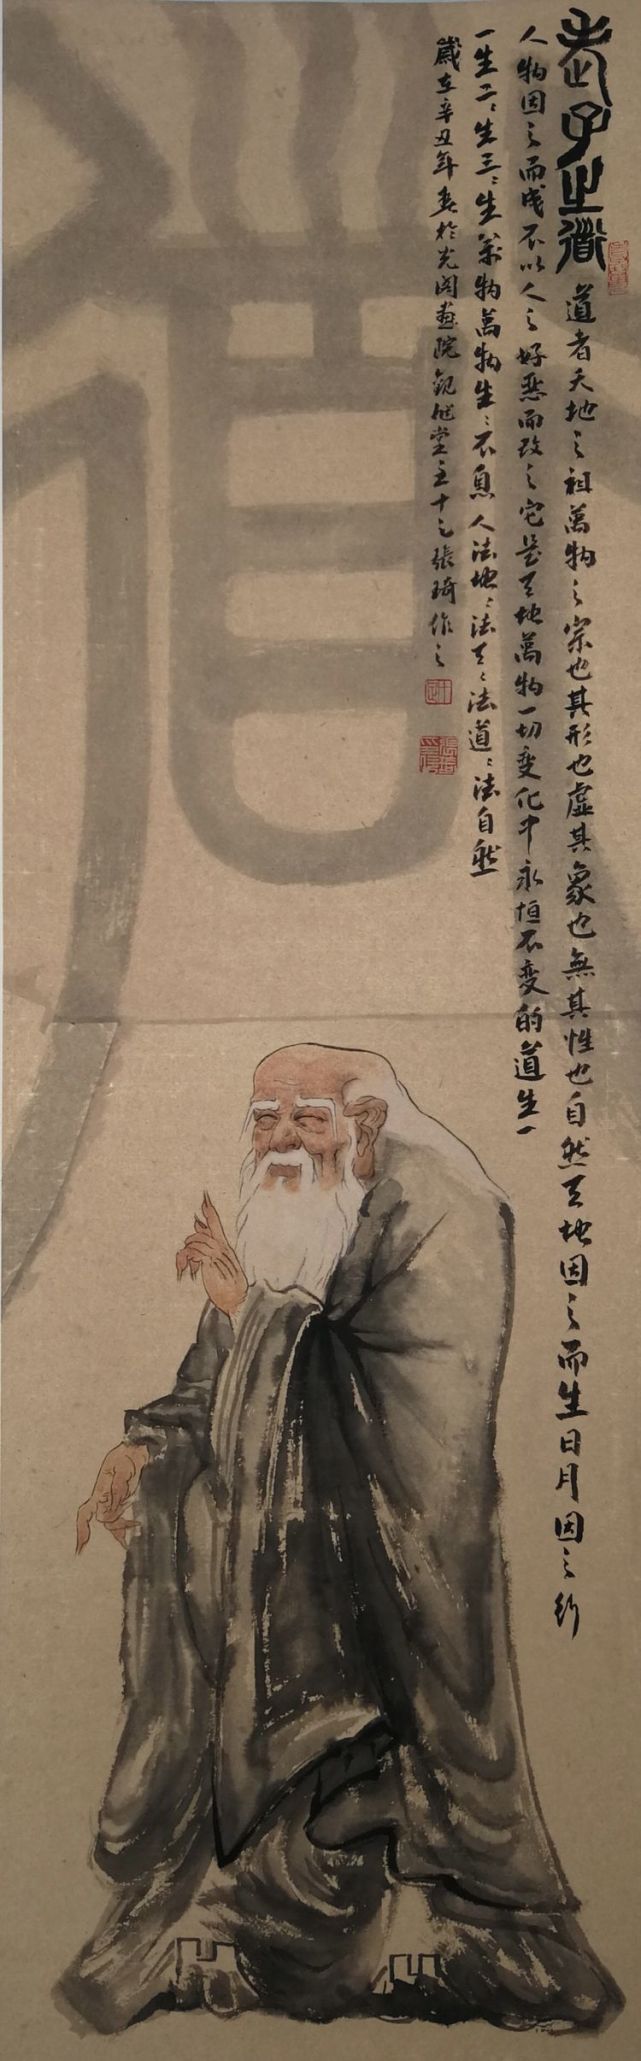 老子之道
道者天地之祖萬物之宗也其形也虛其象也無其性也自然天地因之而生日月因之行
人物因之而成不以人之好惡而改之它是天地萬物一切变化中永恒不变的道生一
一生二〻生三〻生萬物萬物生〻不息人法地〻法天〻法道〻法自然
歲在辛丑年春於光阁画院觀継堂主十之張琦作之
道